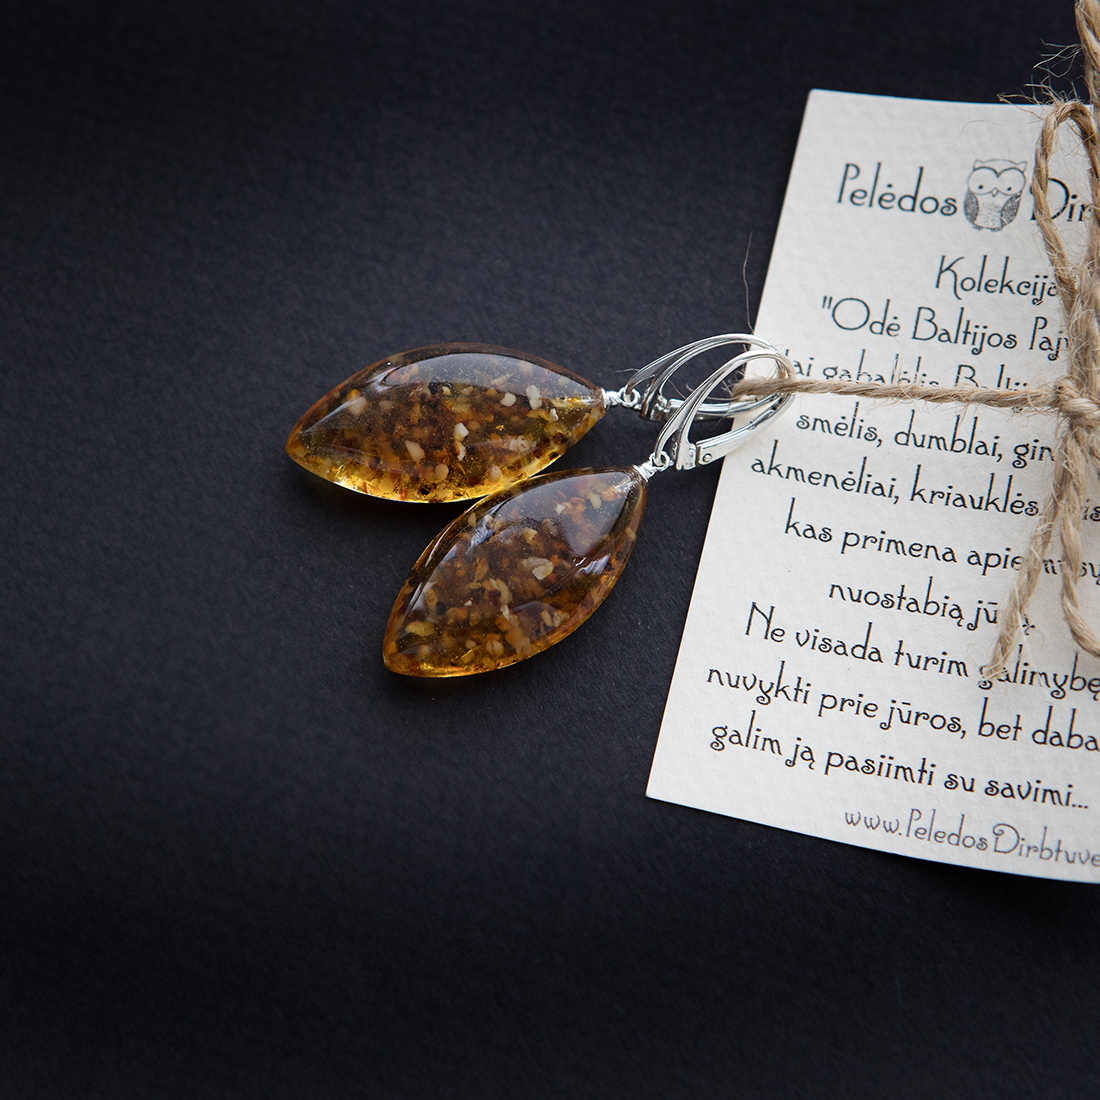 Pelėdos Dir
Kolekcija
"Odė Baltijos Paj
gabalėlis
smėlis, dumblai, gin
akmenėliai, kriauklės
kas primena apie
nuostabią
Ne visada turim galimybę
nuvykti prie jūros, bet daba
galim ją pasiimti su savimi...
www.PeledosDirbtuve